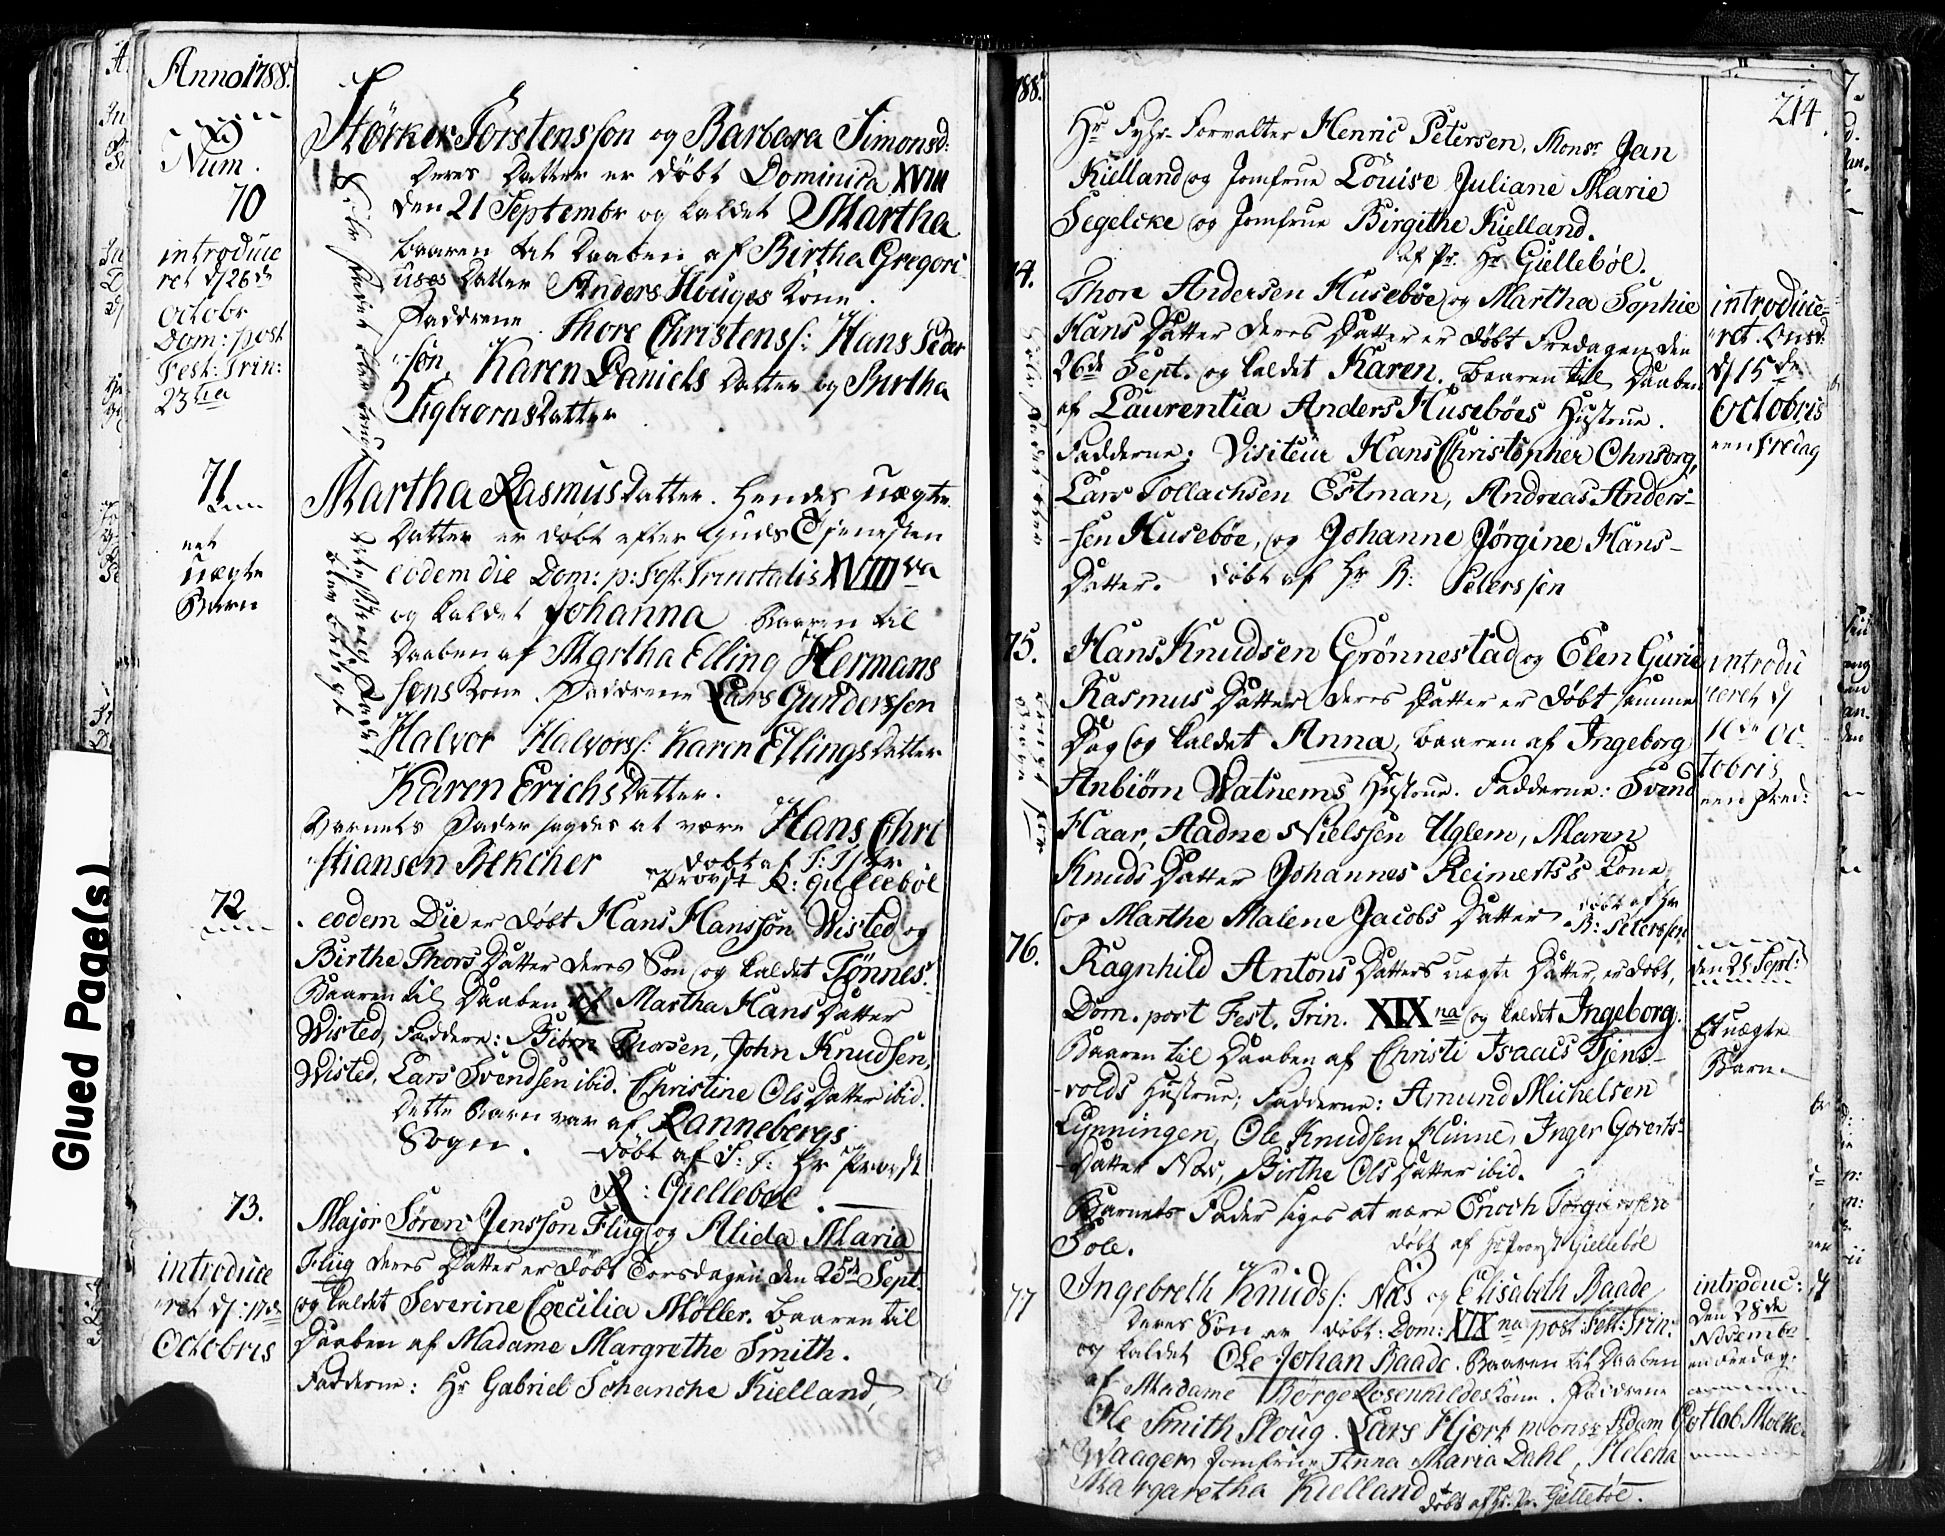 Anno 1788.
Num.
70
introduce
ret d/ 26de
Octobr
Dom: post
Fest: Trin:
23tia
Størker Torstensson og Barbara Simonsd:
Deres Datter er døbt Dominica XVIII
den 21 Septembr og kaldet Martha
baaren til Daaben af Birtha Gregori
uses Datter Anders Houges Kone.
Faddrene Thore Christenss: Hans Peder
søn, Karen Daniels Datter og Birtha
Sigbiørns Datter
71
et
uægte
Barn
Martha Rasmus Datter. Hendes uægte
Datter er døbt efter Guds Tjenesten
eodem die Dom: p: Fest: Trinitatis XVIII va
og kaldet Johanna Baaren til
Daaben af Martha Elling Hermans
sens Kone. Faddrene Lars Gunderssen
Halvor Halvorss: Karen Ellings Datter
Karen Erichs Datter.
Barnets Fader sagdes at være Hans Chri
stiansen Bekcher
Provst R: Gullebøl
72
eodem Die er døbt Hans Hansson Wisted og
Birthe Thors Datter deres Søn og kaldet Tønnes.
Baaren til Daaben af Martha Hans Datter
Wisted, Faddere: Biørn Thorsen, John Knudsen,
Wisted, Lars Svendsen ibid. Christine Ols Datter ibid.
Dette Barn var af Rannebergs
Sogn. døbt af S: T: Hr Provst
R: Gjellebøl.
73.
introduce
ret d/: 17de
Octobris
Major Søren Jensson Flüg og Alida Maria
Flüg deres Datter er døbt Torsdagen den 25de Sept.
og kaldet Severine Cæcilia Møller. baaren til
Daaben af Madame Margrethe Smith.
Fadderne: Hr Gabriel Schanche Kielland,
788.
214.
Hr Fyhr-Forvalter Henric Petersen, Monsr Jan
Kielland og Jomfrue Louise Juliane Marie
Segelcke og Jomfrue Birgithe Kielland.
af Pr. Hr Gullebøl.
74.
Thore Andersen Husebøe og Martha Sophie
Hans Datter deres Datter er døbt Fredagen den
26de Sept. og kaldet Karen. baaren til Daaben
af Laurentia Anders Husebøes Hustrue.
Fadderne: Visiteur Hans Christopher Ohnsorg,
Lars Tollachsen Estman, Andreas Anders-
-sen Husebøe, og Johanne Jørgine Hans-
Datter. døbt af Hr R: Peterssen
introduce-
ret
d/ 15de
Octobris
een Fredag
75.
Hans Knudsen Grønnestad og Elen Gurie
Rasmus Datter deres Datter er døbt samme
Dag og kaldet Anna, baaren af Ingeborg
Anbiørn Watnems Hustrue. Fadderne: Svend
Haar, Aadne Nielssen Uglem, Maren
Knuds Datter Johannes Reimerts's Kone
og Marthe Malene Jacobs Datter døbt af Hr
R: Peterssen
introdu
ceret d/
Oc-
tobris
een Fred:
76.
Ragnhild Antons Datters uægte Datter er døbt,
Dom. post Fest. Trin. XIX na og kaldet Ingeborg.
Baaren til Daaben af Christi Isaacs Tjens-
-volds Hustrue; Fadderne: Amund Michelsen
Lynningen, Ole Knudsen Hinne, Inger Goverts-
-Datter Næs, Birthe Ols Datter ibid.
Barnets Fader siges at være Enoch Torgierssen
Sole. døbt af Hr Provst Gjellebøl
den 28 Sept:
Et uægte
Barn.
77
Ingebreth Knuds: Næs og Elisabeth Baade
Deres Søn er døbt: Dom: XIX na post: Fest: Trin:
og kaldet Ole Johan Baade. Baaren til Daaben
af Madame Børge Rosenkildes Kone. Faddrene
Ole Smith Ploug. Lars Hjort Monsr Adam Gotlob Moltke
Waagen Jomfrue Anna Maria Dahl, Helena
Margaretha Kielland døbt af Hr. Pr. Gjellebøl.
introduc:
den 28de
Novembr
en Fredag.
Glued Page(s)